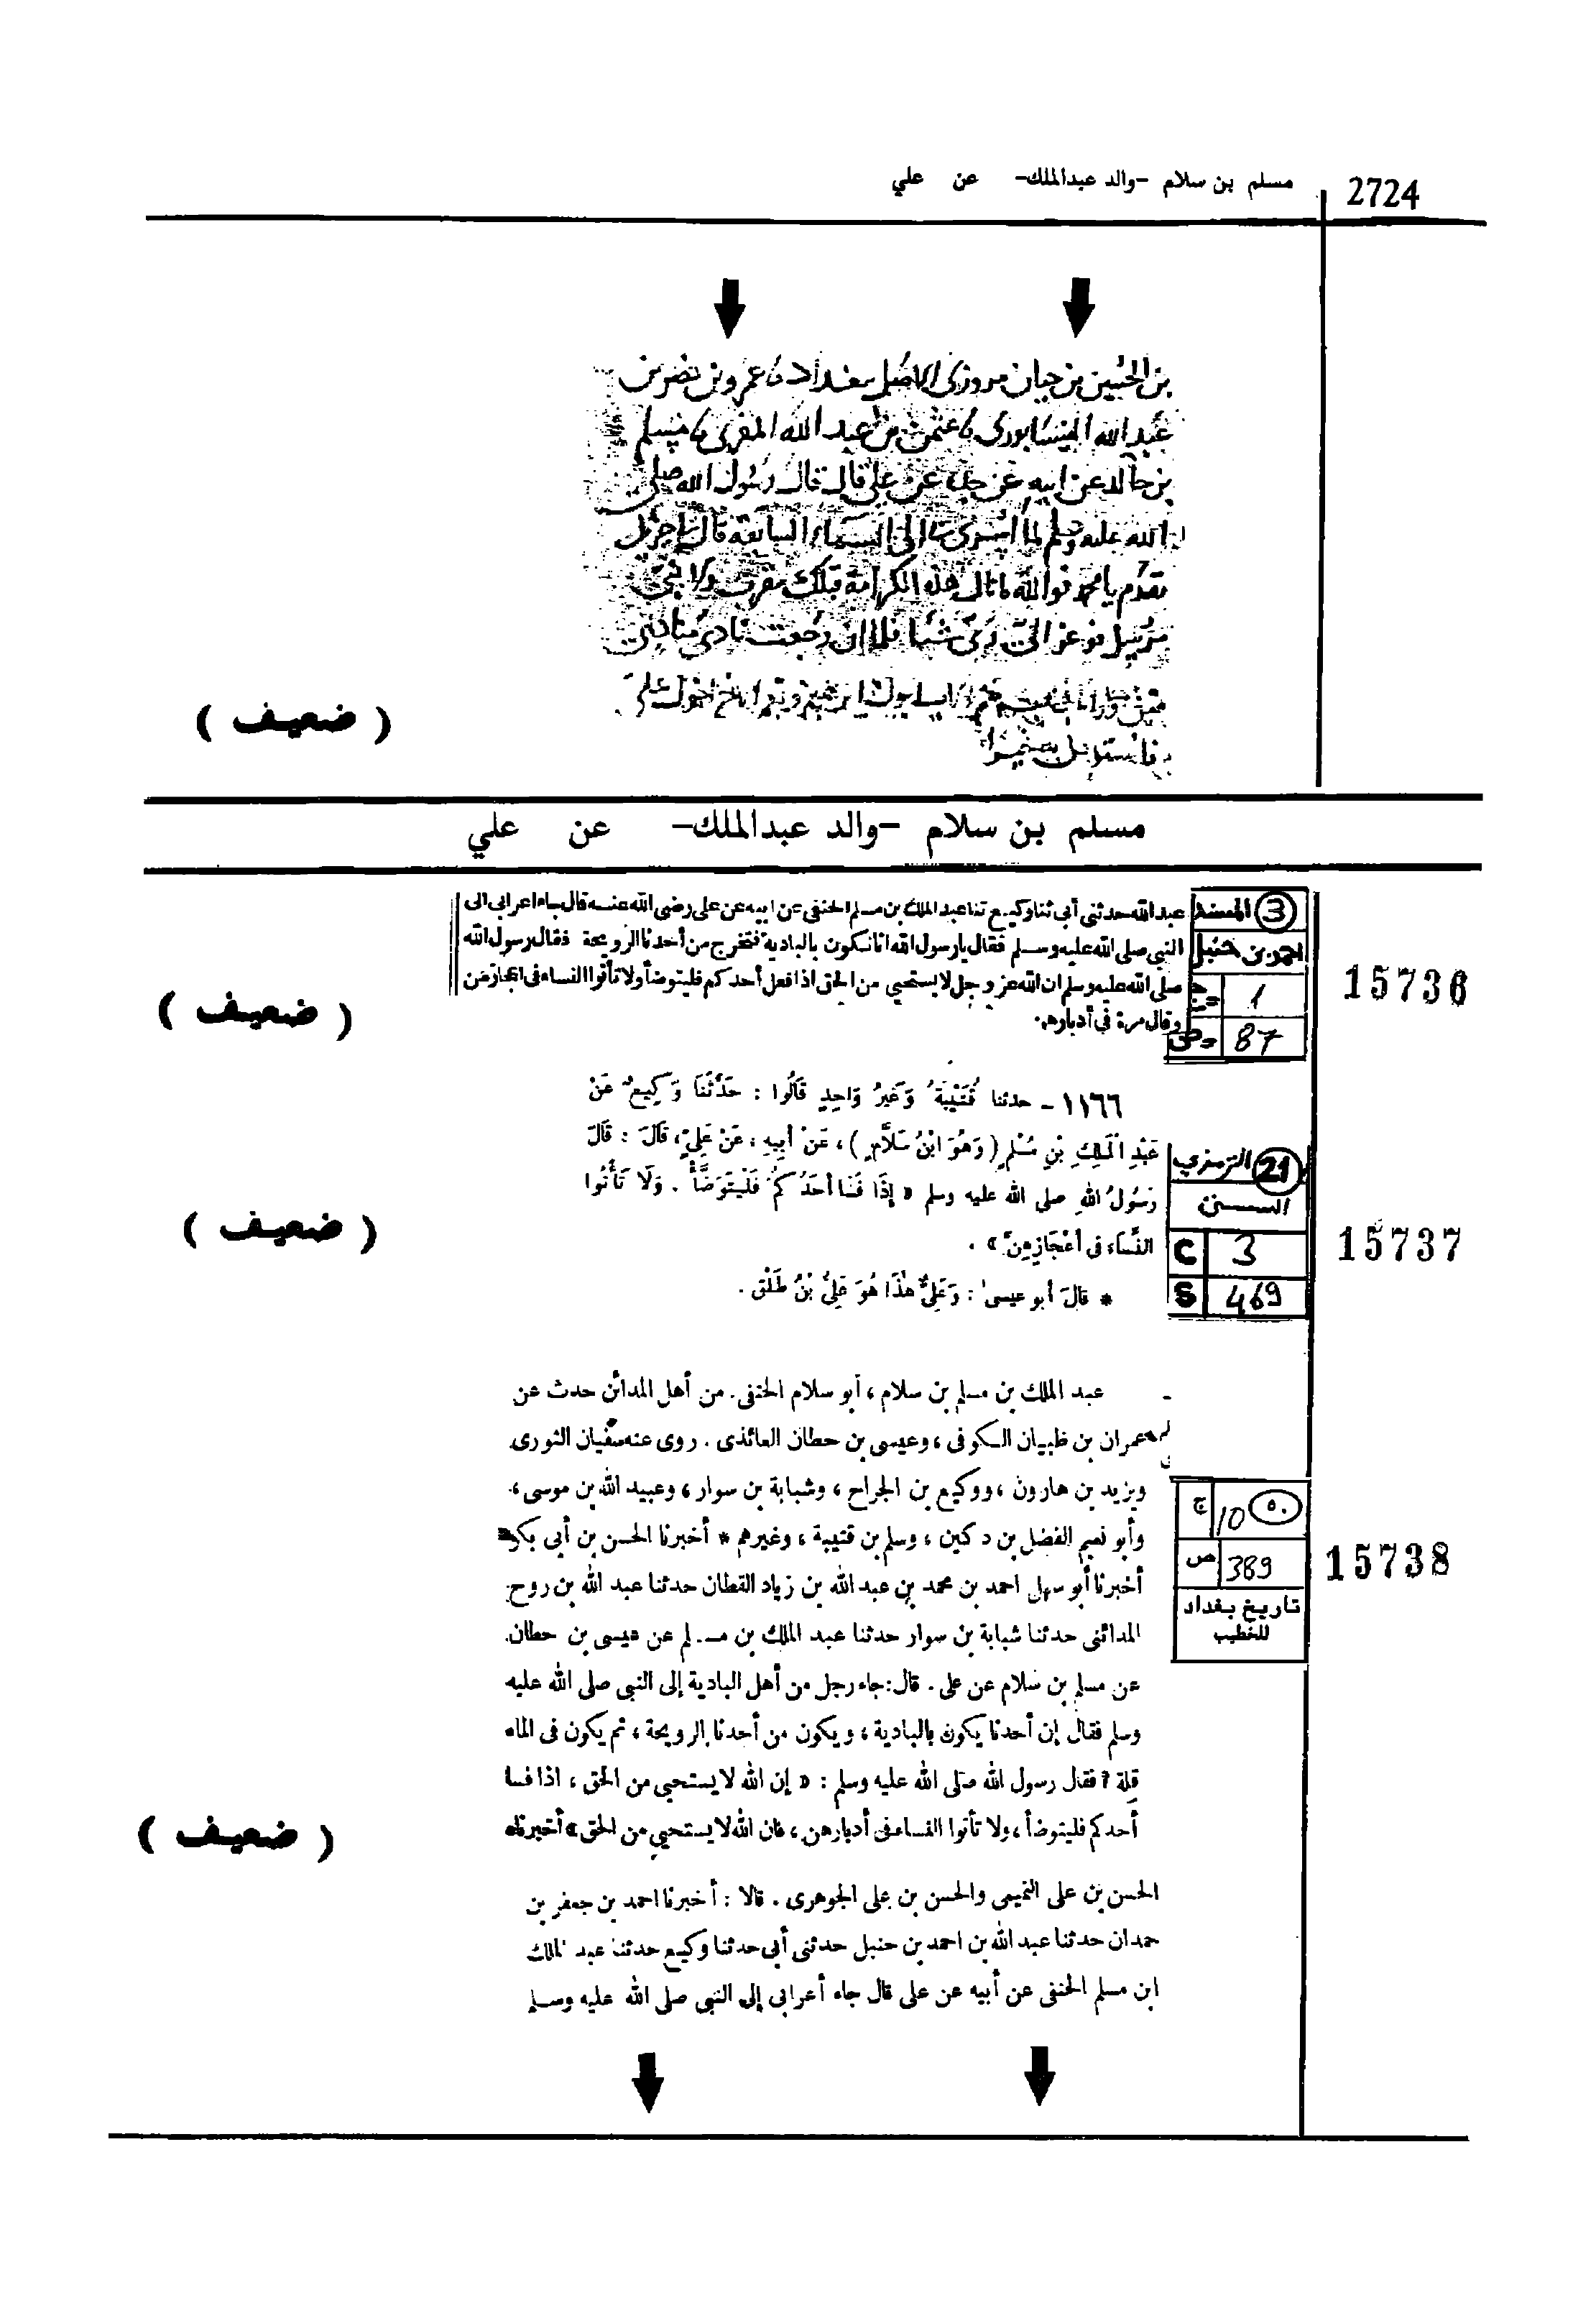 2724
مسلم بن سلام -والد عبدالملك- عن علي
بن الحسين بن حيان مروزى الاصل ببغداد نا عمرو بن نضر بن
عبد الله النيسابورى نا عثمن بن عبد الله المقرى نا مسلم
بن خالد عن ابيه عن جده عن علي قال قال رسول الله صلى
الله عليه وسلم لما اسرى بى الى السماء السابعة قال لي جبريل
تقدم يا محمد فوالله ما نال هذه الكرامة ملك مقرب ولا نبى
مرسل
( ضعيف )
مسلم بن سلام -والد عبدالملك- عن علي
3 المسند
احمد بن حنبل
ج= 1
ص= 87
15736
عبد الله حدثنى أبى ثنا وكيع ثنا عبد الملك بن مسلم الحنفى عن ابيه عن على رضى الله عنه قال جاء اعرابى الى
النبى صلى الله عليه وسلم فقال يارسول الله انا نكون بالبادية فتخرج من أحدنا الرويحة فقال رسول الله
صلى الله عليه وسلم ان الله عز وجل لا يستحيي من الحق اذا فعل أحدكم فليتوضأ ولا تأتوا النساء فى اعجازهن
وقال مرة فى أدبارهن.
( ضعيف )
١١٦٦ - حدثنا قُتَيْبَةُ وَغَيْرُ وَاحِدٍ قَالُوا : حَدَّثَنَا وَكِيعٌ عَنْ
عَبْدِ الْمَلِكِ بْنِ مُسْلِمٍ ( وَهُوَ ابْنُ سَلَّامٍ ) ، عَنْ أبِيهِ ، عَنْ عَلِيٍّ ، قَالَ : قَالَ
رَسُولُ اللهِ صلى الله عليه وسلم « إِذَا فَسَا أحَدُكُمْ فَلْيَتَوَضَّأْ . وَلَا تَأْتُوا
النِّسَاءَ فى أعْجَازِهِنَّ » .
* قَالَ أبو عيسى : وَعَلِيٌّ هٰذَا هُوَ عَلِيُّ بْنُ طَلْقٍ .
21 الترمذي
السنن
C 3
S 469
15737
( ضعيف )
عبد الملك بن مسلم بن سلام ، أبو سلام الحنفى. من أهل المدائن حدث عن
عمران بن ظبيان الكوفى ، وعيسى بن حطان العائذى . روى عنه سفيان الثورى
ويزيد بن هارون ، ووكيع بن الجراح ، وشبابة بن سوار ، وعبيد الله بن موسى ،
وأبو نعيم الفضل بن دكين ، وسلم بن قتيبة ، وغيرهم * أخبرنا الحسن بن أبى بكر
أخبرنا أبو سهل احمد بن محمد بن عبد الله بن زياد القطان حدثنا عبد الله بن روح
المدائنى حدثنا شبابة بن سوار حدثنا عبد الملك بن مسلم عن عيسى بن حطان
عن مسلم بن سلام عن على . قال : جاء رجل من أهل البادية إلى النبى صلى الله عليه
وسلم فقال إن أحدنا يكون بالبادية ، ويكون من أحدنا الرويحة ، ثم يكون فى الماء
قلة ؟ فقال رسول الله صلى الله عليه وسلم : « إن الله لا يستحيى من الحق ، اذا فسا
أحدكم فليتوضأ ، ولا تأتوا النساء فى أدبارهن ، فان الله لا يستحيي من الحق » أخبرنا
الحسن بن على التميمى والحسن بن على الجوهرى . قالا : أخبرنا احمد بن جعفر بن
حمدان حدثنا عبد الله بن احمد بن حنبل حدثنى أبى حدثنا وكيع حدثنا عبد الملك
ابن مسلم الحنفى عن أبيه عن على قال جاء أعرابى إلى النبى صلى الله عليه وسلم
٥٠
ج 10
ص 389
تاريخ بغداد
للخطيب
15738
( ضعيف )